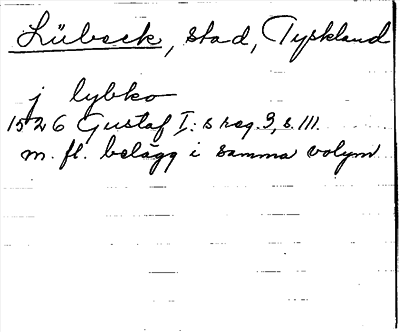 Lübeck, stad, Tyskland
j lybko
1526 Gustaf I:s reg. 3, s. 111.
m. fl. belägg i samma volym